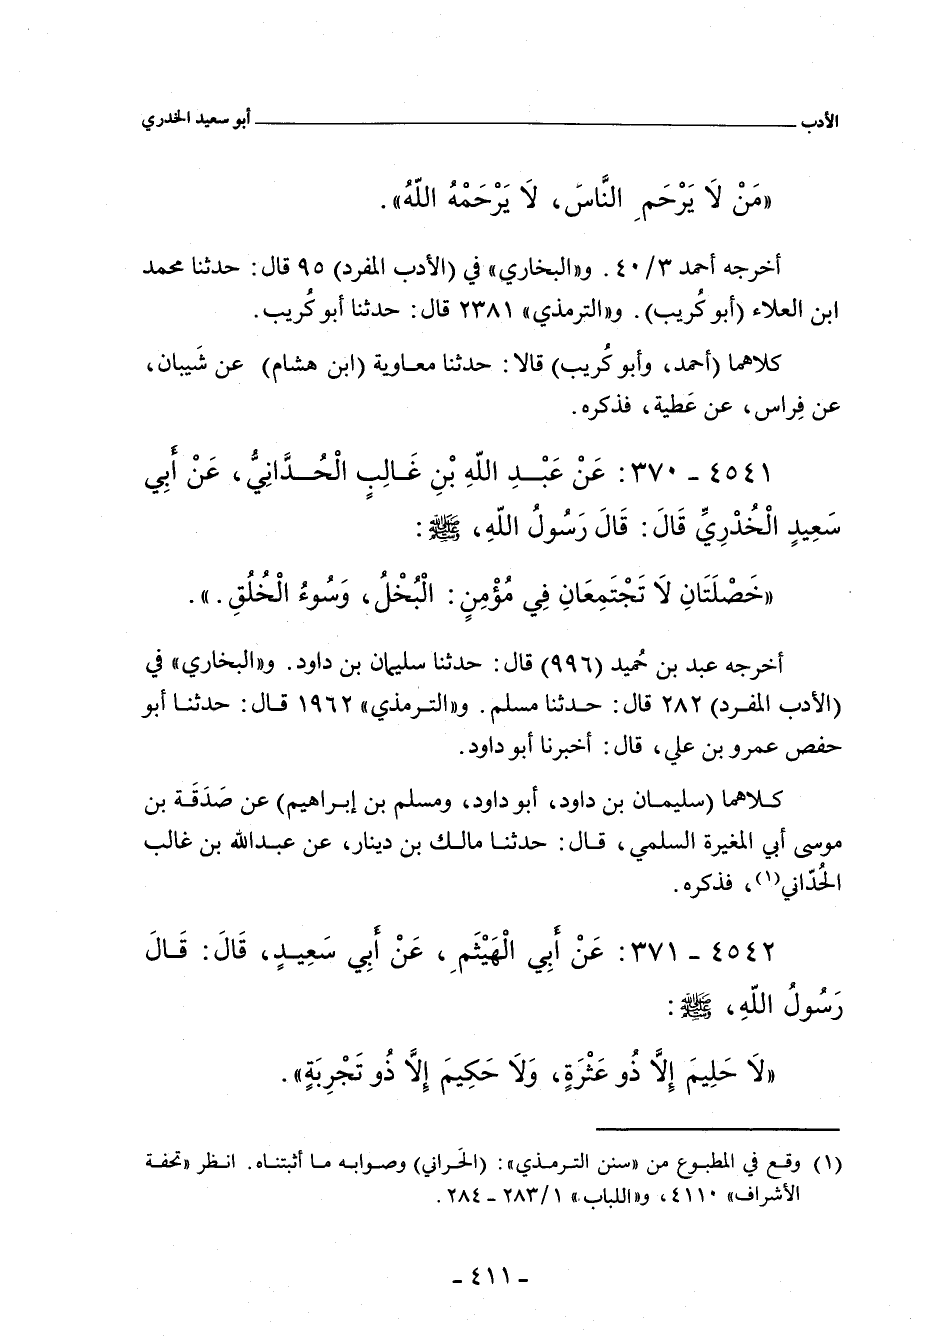 الأدب ـــــــــــــــــ أبو سعيد الخدري
«مَنْ لَا يَرْحَمِ النَّاسَ، لَا يَرْحَمْهُ اللّهُ».
أخرجه أحمد ٤٠/٣. و«البخاري» في (الأدب المفرد) ٩٥ قال: حدثنا محمد
ابن العلاء (أبو كُريب). و«الترمذي» ٢٣٨١ قال: حدثنا أبو كُريب.
كلاهما (أحمد، وأبو كُريب) قالا: حدثنا معاوية (ابن هشام) عن شَيبان،
عن فِراس، عن عَطية، فذكره.
٤٥٤١ ـ ٣٧٠: عَنْ عَبْدِ اللّهِ بْنِ غَالِبٍ الْحُدَّانِيُّ، عَنْ أَبِي
سَعِيدٍ الْخُدْرِيِّ قَالَ: قَالَ رَسُولُ اللّهِ، ﷺ:
«خَصْلَتَانِ لَا تَجْتَمِعَانِ فِي مُؤْمِنٍ: الْبُخْلُ، وَسُوءُ الْخُلُقِ.».
أخرجه عبد بن حُميد (٩٩٦) قال: حدثنا سليمان بن داود. و«البخاري» في
(الأدب المفرد) ٢٨٢ قال: حدثنا مسلم. و«الترمذي» ١٩٦٢ قال: حدثنا أبو
حفص عمرو بن علي، قال: أخبرنا أبو داود.
كلاهما (سليمان بن داود، أبو داود، ومسلم بن إبراهيم) عن صَدَقَة بن
موسى أبي المغيرة السلمي، قال: حدثنا مالك بن دينار، عن عبدالله بن غالب
الحُدّاني(١)، فذكره.
٤٥٤٢ ـ ٣٧١: عَنْ أَبِي الْهَيْثَمِ، عَنْ أَبِي سَعِيدٍ، قَالَ: قَالَ
رَسُولُ اللّهِ، ﷺ:
«لَا حَلِيمَ إِلَّا ذُو عَثْرَةٍ، وَلَا حَكِيمَ إِلَّا ذُو تَجْرِبَةٍ».
(١) وقع في المطبوع من «سنن الترمذي»: (الحَراني) وصوابه ما أثبتناه. انظر «تحفة
الأشراف» ٤١١٠، و«اللباب» ٢٨٣/١ ـ ٢٨٤.
ـ ٤١١ ـ